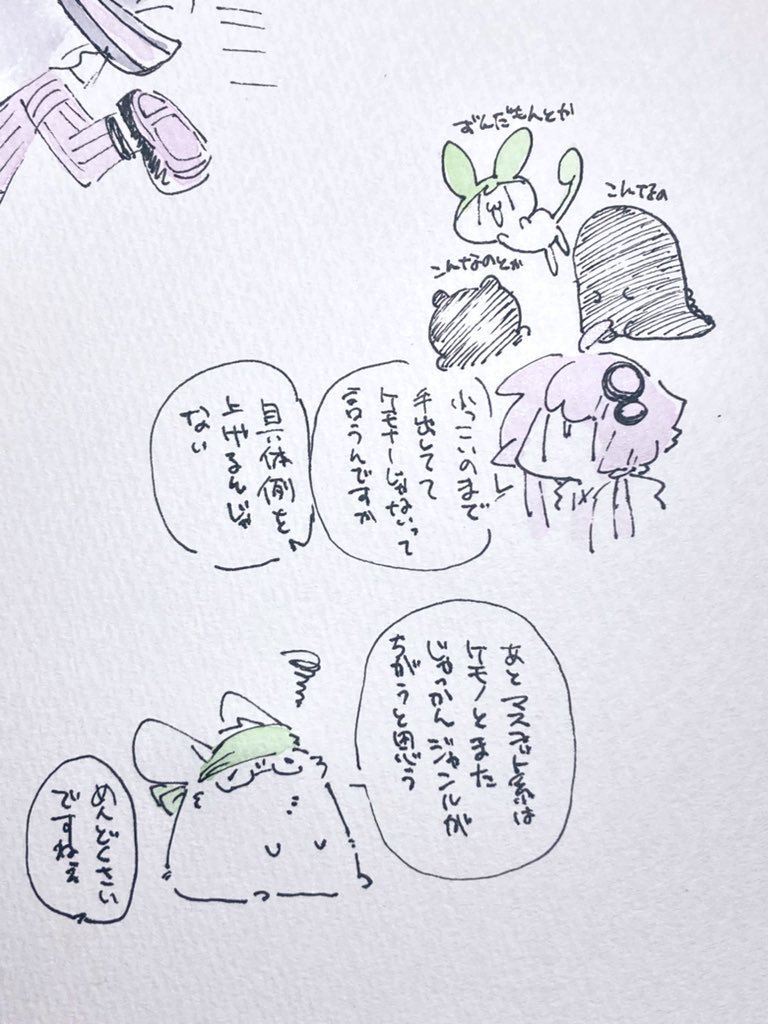 ずんだもんとか
こんなの
こんなのとか
小っこいのまで
手出してて
ケモナーじゃないって
言うんですか
具体例を
上げるんじゃ
ない
あとマスコット系は
ケモノとまた
じゃっかんジャンルが
ちがうと思う
めんどくさい
ですねぇ